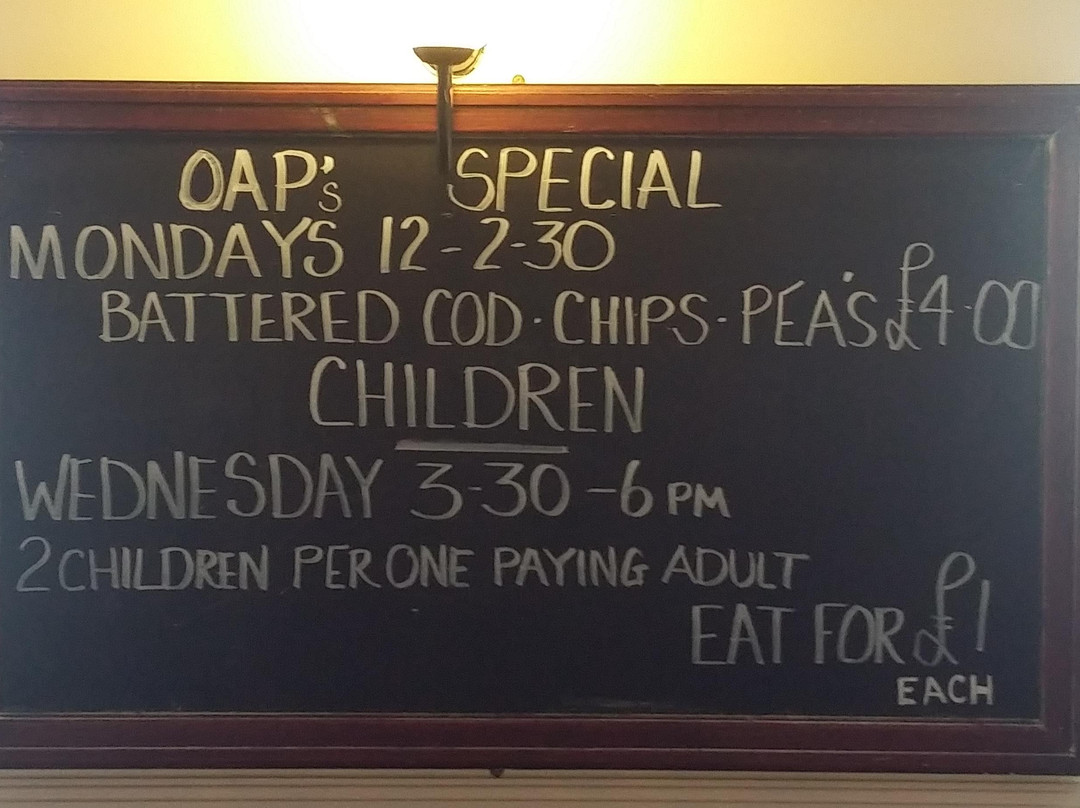 OAP's SPECIAL
MONDAYS 12-2-30
BATTERED COD·CHIPS-PEA'S £4·00
CHILDREN
WEDNESDAY 3-30-6PM
2 CHILDREN PER ONE PAYING ADULT
EAT FOR £1
EACH